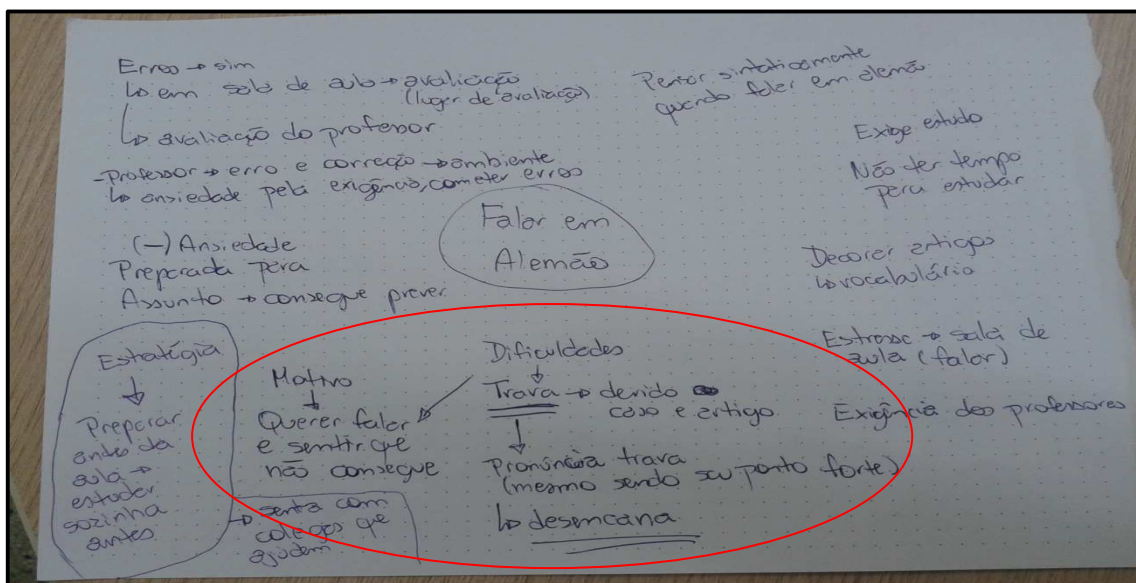 Erros → sim
↳ em sala de aula → avaliação
(lugar de avaliação)
↳ avaliação do professor
- Professor → erro e correção → ambiente
↳ ansiedade pela exigência, cometer erros
(-) Ansiedade
Preparada para
Assunto → consegue prever
Falar em
Alemão
Pensar sintaticamente
quando falar em alemão
Exige estudo
Não ter tempo
para estudar
Decorar artigos
↳ vocabulário
Estresse → sala de
aula (falar)
Exigência dos professores
Estratégia
↓
Preparar
antes da
aula →
estudar
sozinha
antes
→ senta com
colegas que
ajudem
Motivo
↓
Querer falar
e sentir que
não consegue
Dificuldades
↓
Trava → devido
caso e artigo
↓
Pronúncia trava
(mesmo sendo seu ponto forte)
↳ desencana